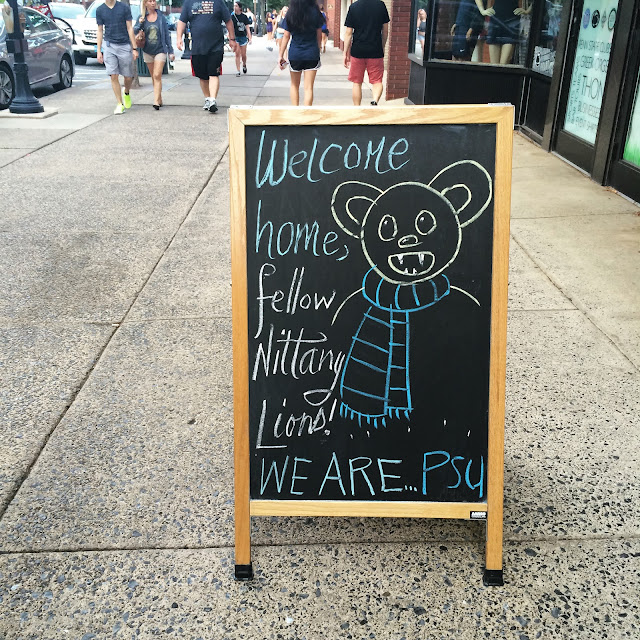 Welcome
home,
fellow
Nittany
Lions!
WE ARE... PSU